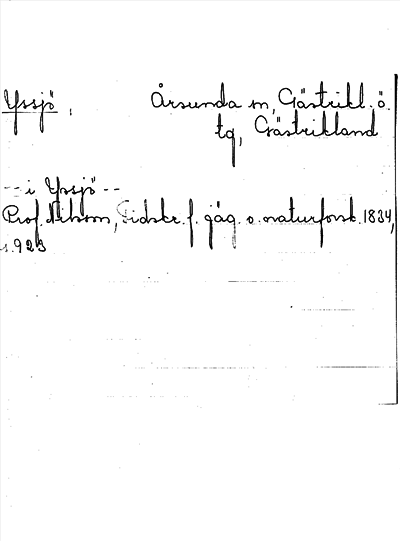 Yssjö, Årsunda sn, Gästrikl. ö.
tg, Gästrikland
-- i Yssjö --
Prof. Nilsson, Tidskr. f. jäg. o. naturforsk. 1834,
s. 923